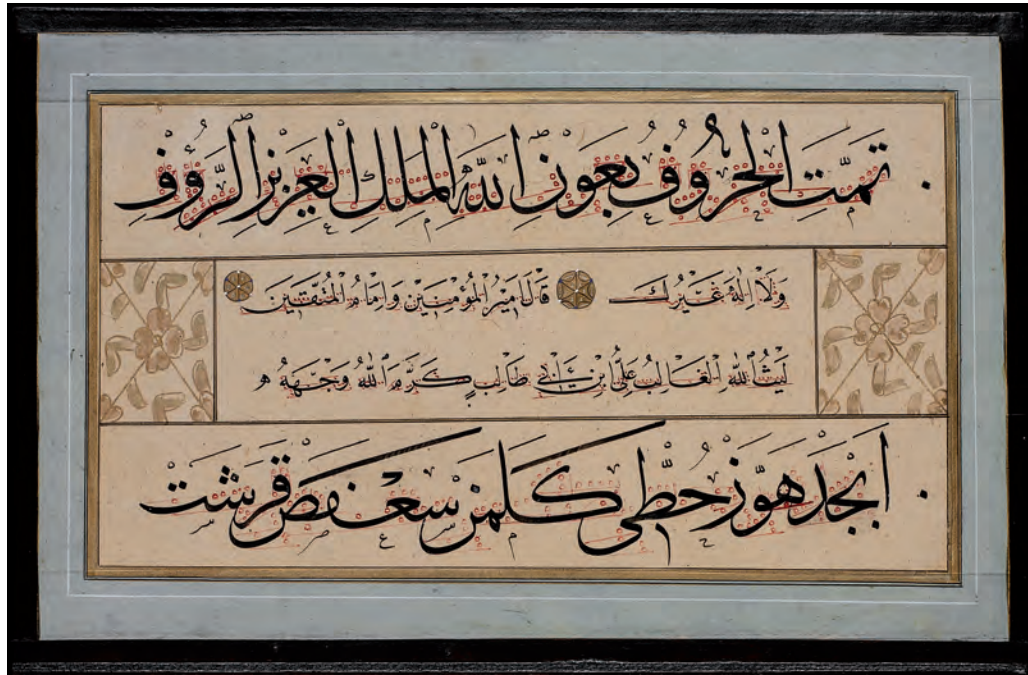 تمت الحروف بعون الله الملك العزيز الرؤوف
ولا اله غيرك قال امير المؤمنين وامام المتقين
ليث الله الغالب علي ابن ابي طالب كرم الله وجهه
ابجد هوز حطي كلمن سعفص قرشت